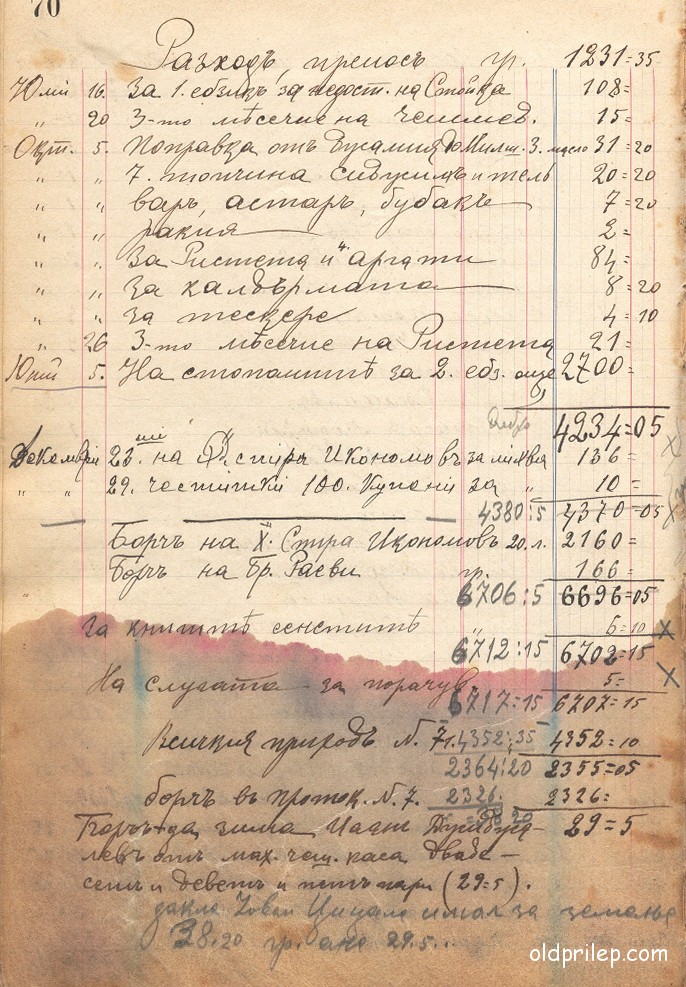 70
Разходъ, преносъ гр. 1231=35
Юлий 16. За 1. ебзикъ за недост. на Стойка 108=
„ 20 3-то мѣсечие на чешмед. 15=
Окт. 5. Поправка отъ 3. масло 31=20
„ „ 7. топчина и тель 20=20
„ „ варъ, астаръ, бубакъ 7=20
„ „ ракия 2=
„ „ За Ристета и аргати 84=
„ „ За калдърмата 8=20
„ „ за тескере 4=10
„ 26 3-то мѣсечие на Ристета 21=
Юний 5. На стопанитѣ за 2. ебз. още 2700=
4234=05
Декемврий 23. на спиръ Икономовъ за лихва 136=
„ „ 29. честитки 100. купени за „ 10=
4380:5 4370=05
Борчъ на Х. Спра Икономовъ 20 л. 2160=
Борчъ на Бр. Раеви гр. 166=
6706:5 6696=05
За книгитѣ „ 6=10
6712:15 6702=15
На слугата за порачув. 5=
6717=15 6707=15
Всичкия приходъ N. 71. 4352:35 4352=10
2364:20 2355=05
борчъ въ проток. N. 7. 2326. 2326=
да зима 29=5
левъ отъ мах. чеш. каса Дваде-
сетъ и деветъ и петъ пари (29=5).
имал за земанье
38.20 гр. ане 29.5..
oldprilep.com